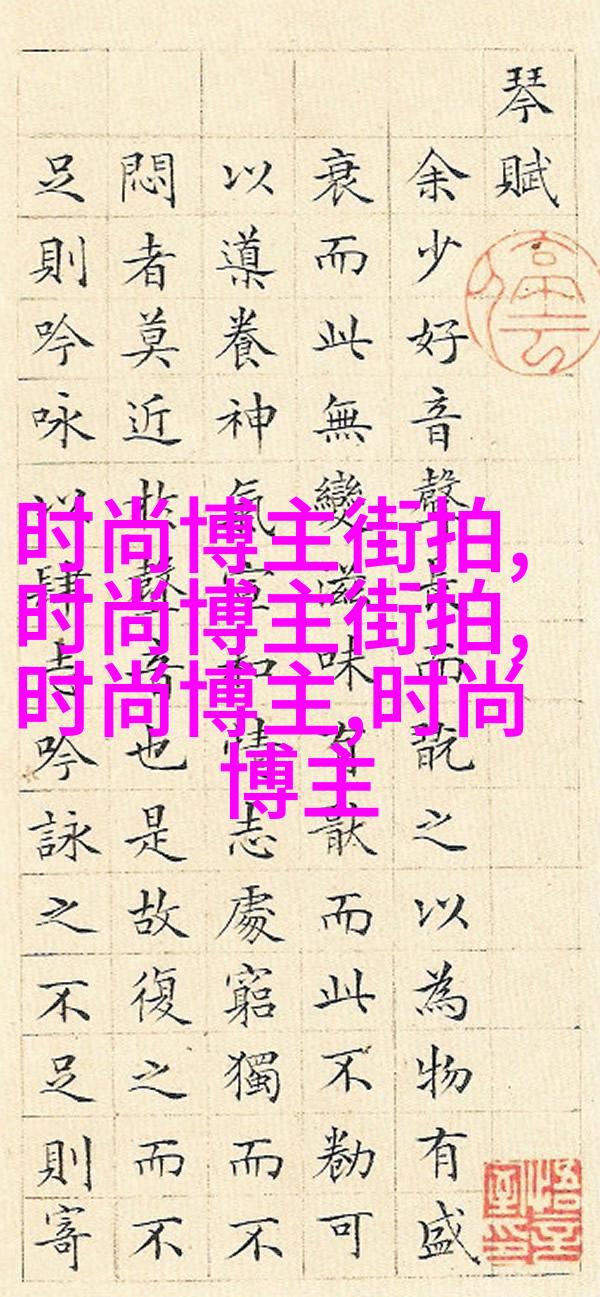 琴賦
余少好音聲長而翫之以為物有盛
衰而此無變滋味有猒而此不勌可
以導養神氣宣和情志處窮獨而不
悶者莫近於聲音也是故復之而不
足則吟咏以肆志吟詠之不足則寄
时尚博主街拍,
时尚博主街拍,
时尚博主,时尚
博主